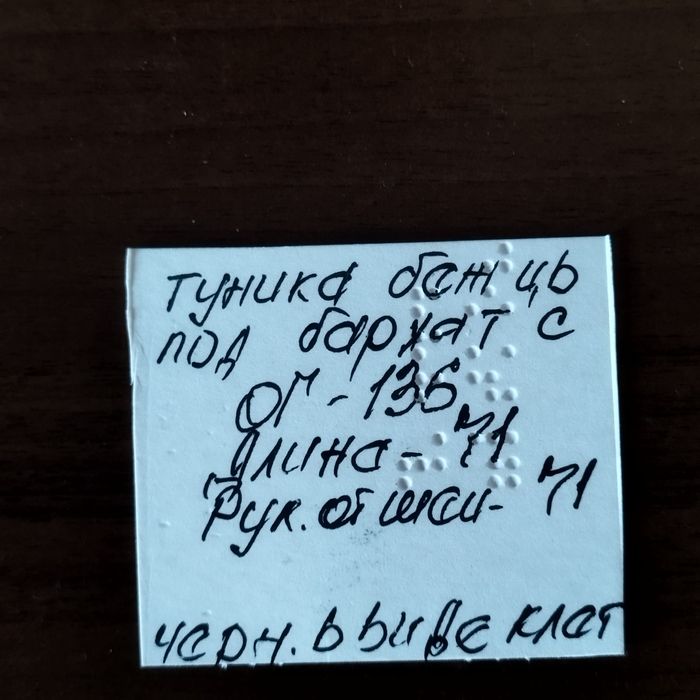 туника беж цв
под бархат с
ОГ-136
Длина-71
Рук.от шеи-71
черн. в виде клет